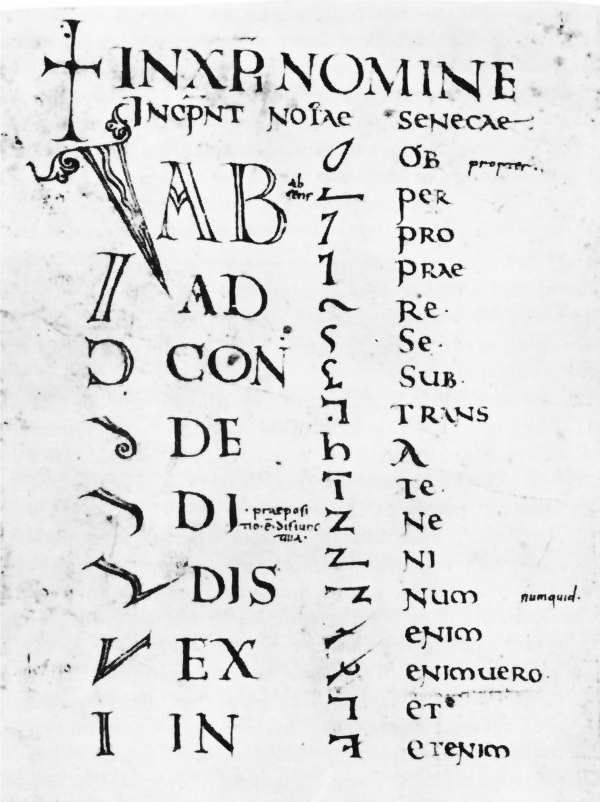 ✝ INXP̅I NOMINE
INCP̅NT NOT̅AE SENECAE
AB ab
AD
Ɔ CON
DE
DI · praeposi
tio·ē·disiunc
tiua·
DIS
EX
I IN
OB propter..
PER
⁊ PRO
PRAE
RE·
SE·
SUB·
TRANS
A
TE·
NE
NI
NUM numquid·
ENIM
ENIMUERO·
ET
ETENIM